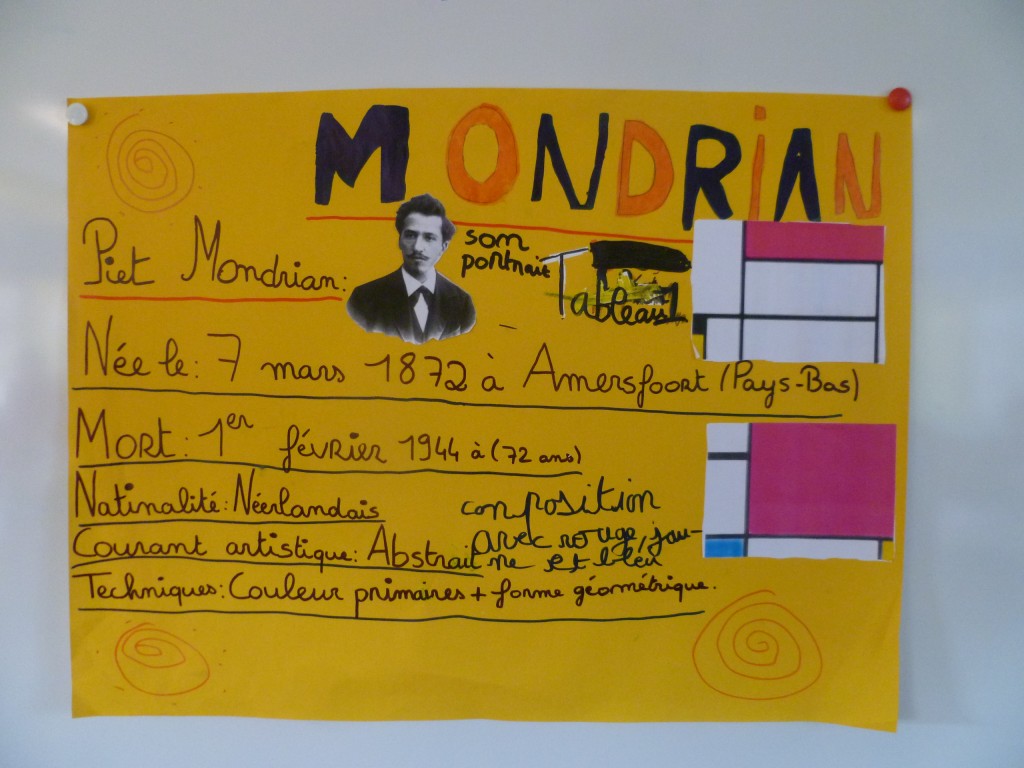 MONDRiAN
Piet Mondrian:
son
portrait
Tableau
Née le: 7 mars 1872 à Amersfoort (Pays-Bas)
Mort: 1er février 1944 à (72 ans)
Natinalité: Néerlandais
Courant artistique: Abstrait
composition
avec rouge, jau-
ne et bleu
Techniques: Couleur primaires + forme géométrique.